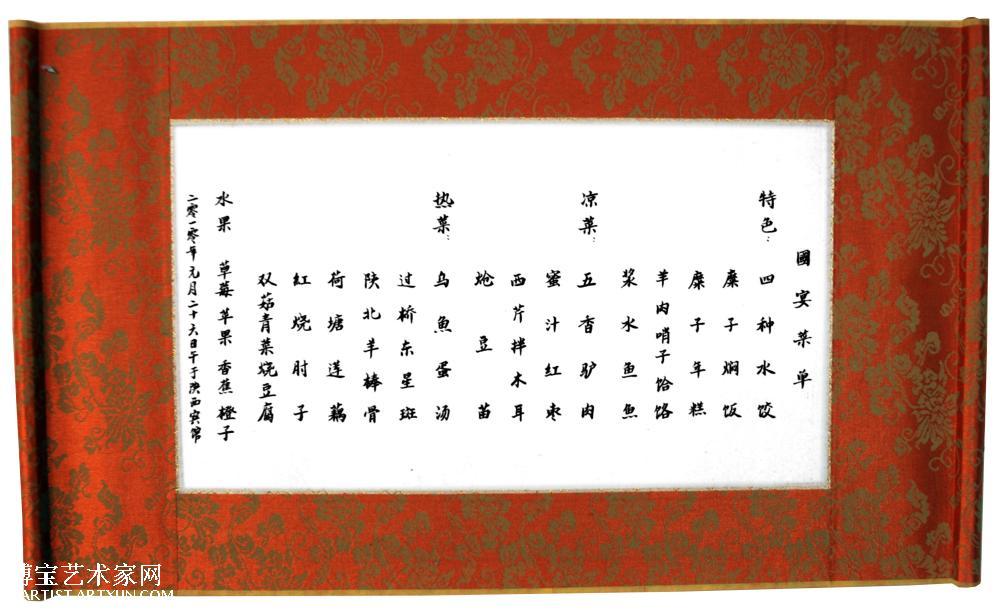 國宴菜单
特色：四种水饺
糜子焖饭
糜子年糕
羊肉哨子饸饹
浆水鱼鱼
凉菜：五香驴肉
蜜汁红枣
西芹拌木耳
炝豆苗
热菜：乌鱼蛋汤
过桥东星斑
陕北羊棒骨
荷塘莲藕
红烧肘子
双菇青菜烧豆腐
水果 草莓 苹果 香蕉 橙子
二零一零年元月二十六日午于陕西宾馆
博宝艺术家网
ARTIST.ARTXUN.COM